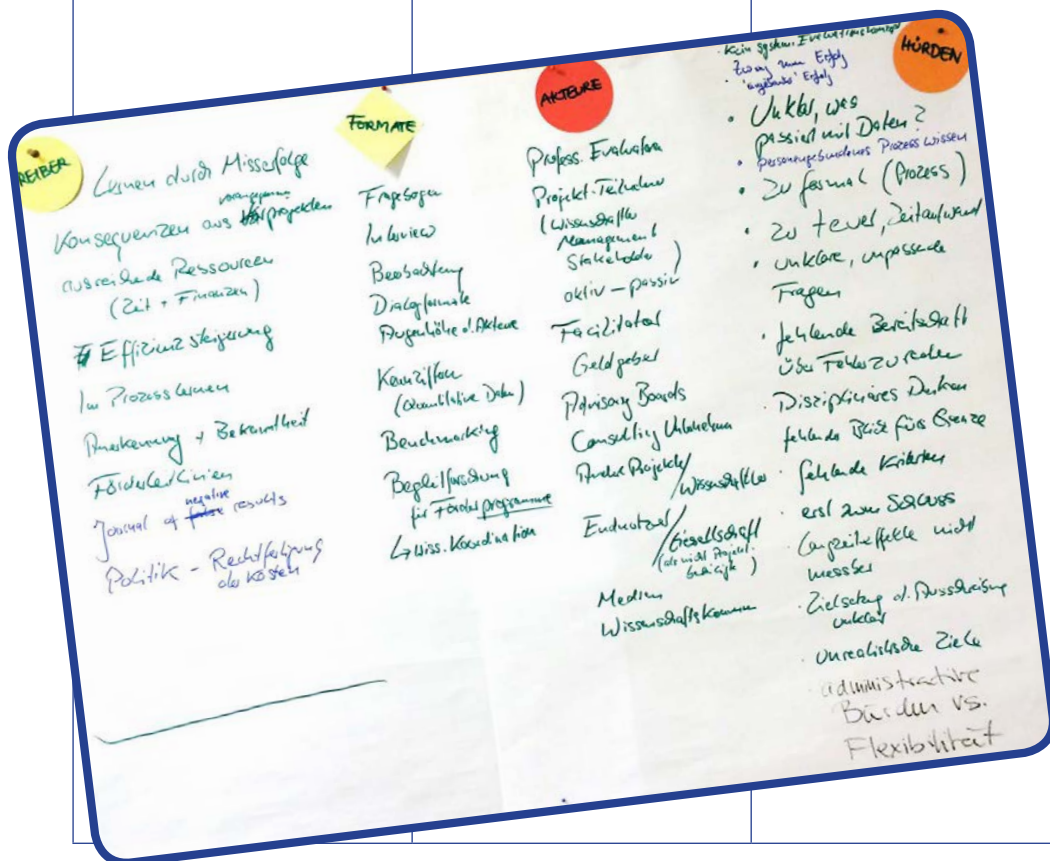 REIBER
Lernen durch Misserfolge
Konsequenzen aus Vorprojekten
ausreichende Ressourcen
(Zeit + Finanzen)
Effizienzsteigerung
Im Prozess lernen
Anerkennung + Bekanntheit
Förderleitlinien
negative
Journal of false results
Politik - Rechtfertigung
der Kosten
FORMATE
Fragebogen
Interview
Beobachtung
Dialogformate
Augenhöhe d. Akteure
Kennziffern
(Quantitative Daten)
Benchmarking
Begleitforschung
für Förderprogramme
↳ Wiss. Koordination
AKTEURE
Profess. Evaluatoren
Projekt-Teilnehmer
(Wissenschaftler
Management
Stakeholder)
aktiv - passiv
Facilitator
Geldgeber
Advisory Boards
Consulting Unternehmen
Andere Projekte/
Wissenschaftler
Endnutzer/
Gesellschaft
(die nicht Projekt-
beteiligte)
Medien
Wissenschaftskomm
HÜRDEN
· Kein system. Evaluationskonzept
· Zwang zum Erfolg
Erfolg
· Unklar, was
passiert mit Daten?
· personengebundenes Prozesswissen
· Zu formal (Prozess)
· zu teuer, Zeitaufwand
· unklare, unpassende
Fragen
· fehlende Bereitschaft
über Fehler zu reden
· Disziplinäres Denken
fehlende Blick fürs Ganze
· fehlende Kriterien
· erst zum Schluss
· Langzeiteffekte nicht
messbar
· Zielsetzung d. Ausschreibung
unklar
· unrealistische Ziele
· administrative
Bürden vs.
Flexibilität